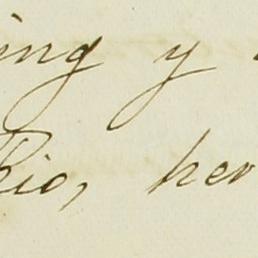 ing y
io, her